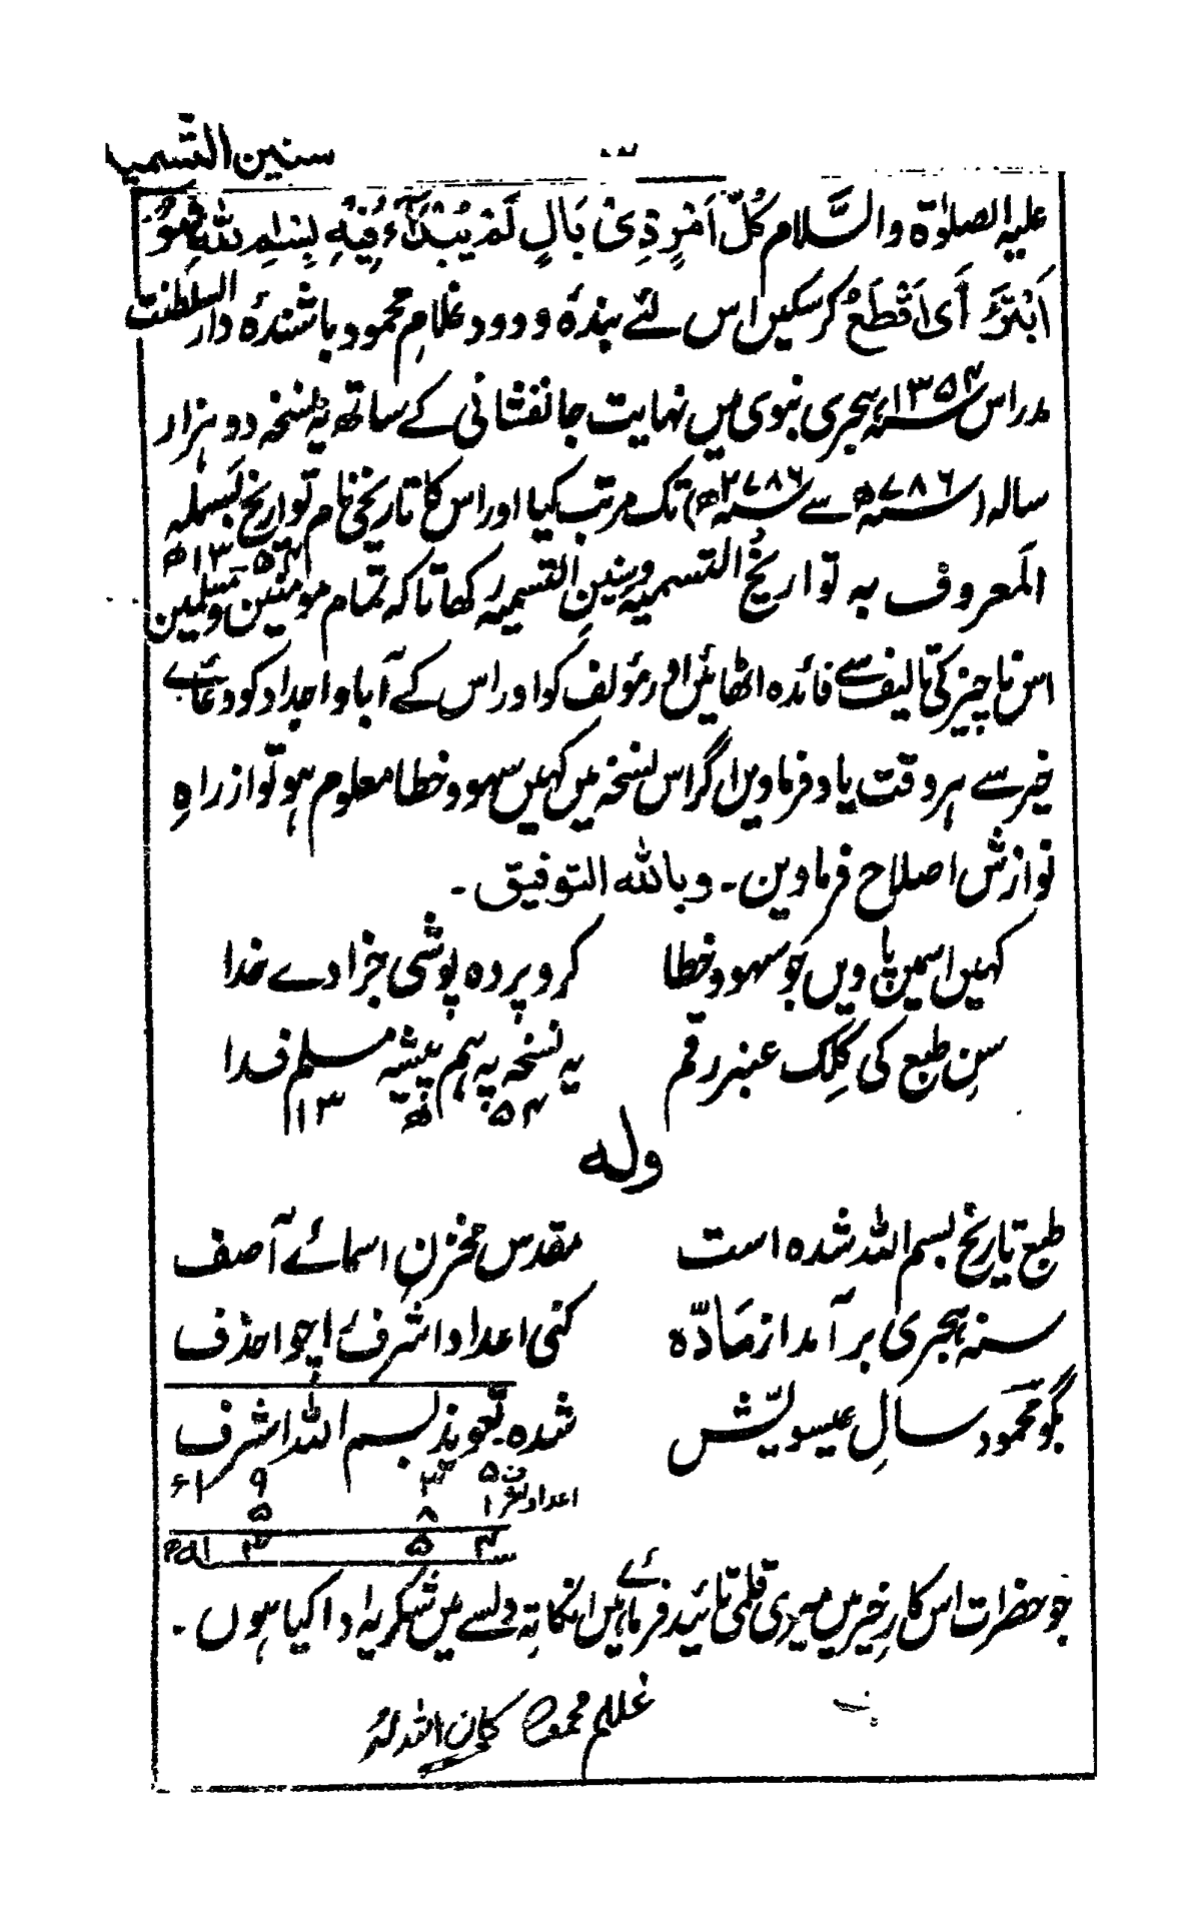 سنین التسمیہ
۳
علیہ الصلوٰۃ والسَّلام کُلُّ اَمْرٍ ذِیْ بَالٍ لَمْ یُبْدَاءُ فِیْہِ بِبِسْمِ اللّٰہِ فَھُوَ
اَبْتَرُ اَیْ اَقْطَعُ کرسکیں اس لئے بندۂ ودود غلام محمود باشندۂ دار السلطنت
مدراس ۱۳۵۴سنہ ہجری نبوی میں نہایت جانفشانی کے ساتھ یہ نسخہ دو ہزار
سالہ (سنہ ۷۸۶ھ سے سنہ ۲۷۸۶ھ) تک مرتب کیا اور اس کا تاریخی نام تواریخ بسملہ
۱۳۵۴ھ
المعروف بہ تواریخُ التسمیہ وسنینِ التسمیہ رکھا تاکہ تمام مومنین ومسلمین
اس ناچیز کی تالیف سے فائدہ اٹھائیں اور مؤلف کو اور اس کے آبا و اجداد کو دعائے
خیر سے ہر وقت یاد فرماویں اگر اس نسخہ میں کہیں سہو و خطا معلوم ہو تو از راہِ
نوازش اصلاح فرماوین ۔ وباللہ التوفیق ۔
کہیں اسمیں پاویں جو سہو و خطا کرو پردہ پوشی جزا دے خدا
سنِ طبع کی کِلک عنبر رقم یہ نسخہ پہ ہم پیشہ مسلم فدا
۱۳ ھ ۵۴
ولہ
طبع تاریخ بسم اللہ شدہ است مقدس مخزنِ اسمائے آصف
سنہ ہجری برآمد از مادّہ کنی اعداد اشرف اچو احذف
بگو محمود سالِ عیسویّش شدہ تعویذ بسم اللہ اشرف
۱۹۳۵ء
اعداد
۵ ۸ ۱
۱۳۵۴ھ
جو حضرات اس کارِ خیر میں میری قلمی تائید فرمائے ہیں انکا تہ دلسے میں شکریہ ادا کیا ہوں ۔
غلام محمود کان اللہ لہٗ